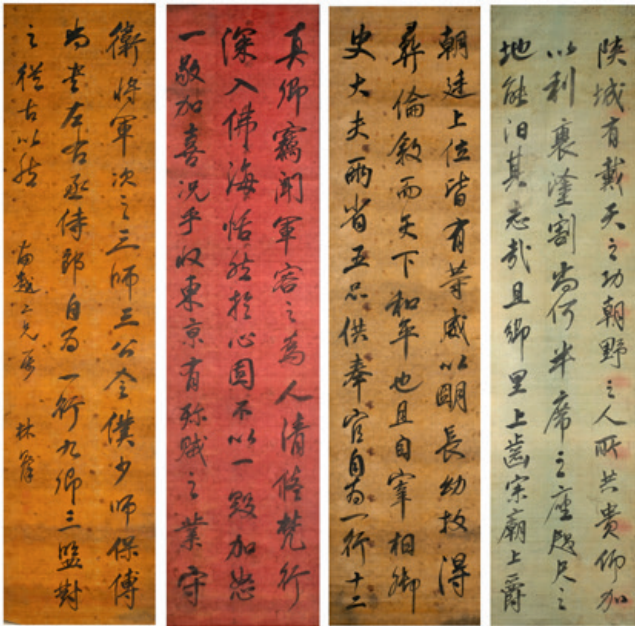 陝城有戴天之功朝野之人所共貴仰加
以利衰塗割尚何半席之座咫尺之
地能汨其志哉且鄉里上齒宗廟上爵
朝廷上位皆有等威以明長幼故得
彝倫敘而天下和平也且自宰相御
史大夫兩省五品供奉官自為一行十二
真卿竊聞軍容之為人清修梵行
深入佛海恬然於心固不以一毀加怒
一敬加喜況乎收東京有殄賊之業守
衛將軍次之三師三公令僕少師保傅
尚書左右丞侍郎自為一行九卿三監對
之從古以然
二兄 林